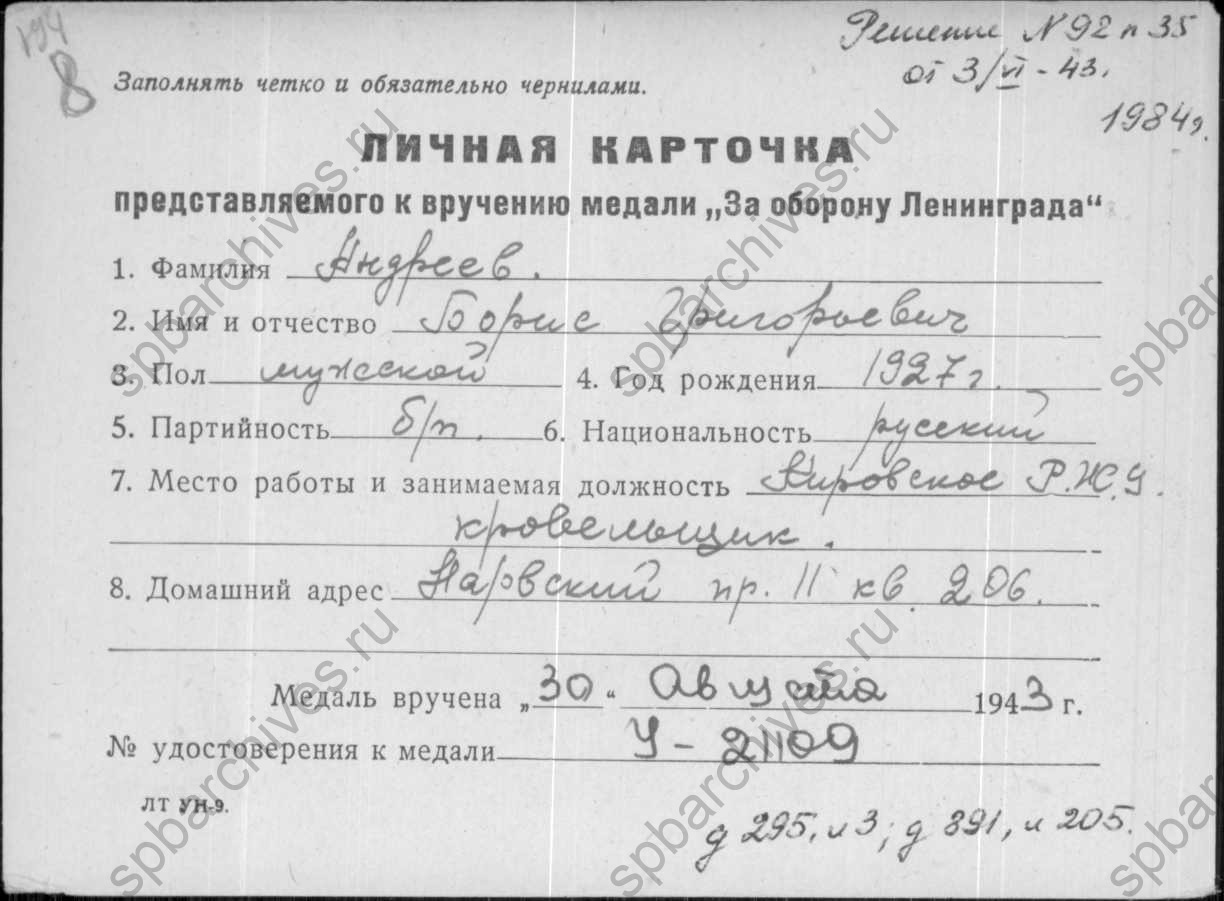 194
8
Решение N 92 п 35
от 3/VI - 43.
1984г.
Заполнять четко и обязательно чернилами.
ЛИЧНАЯ КАРТОЧКА
представляемого к вручению медали „За оборону Ленинграда“
1. Фамилия Андреев.
2. Имя и отчество Борис Григорьевич
3. Пол мужской 4. Год рождения 1927 г.
5. Партийность б/п. 6. Национальность русский
7. Место работы и занимаемая должность Кировское Р.Ж.У.
кровельщик.
8. Домашний адрес Нарвский пр. 11 кв. 206.
Медаль вручена „30“ Августа 1943 г.
№ удостоверения к медали У - 21109
ЛТ УН-9.
д 295, л 3; д 891, л 205.
spbarchives.ru
spbarchives.ru
spbarchives.ru
spbarchives.ru